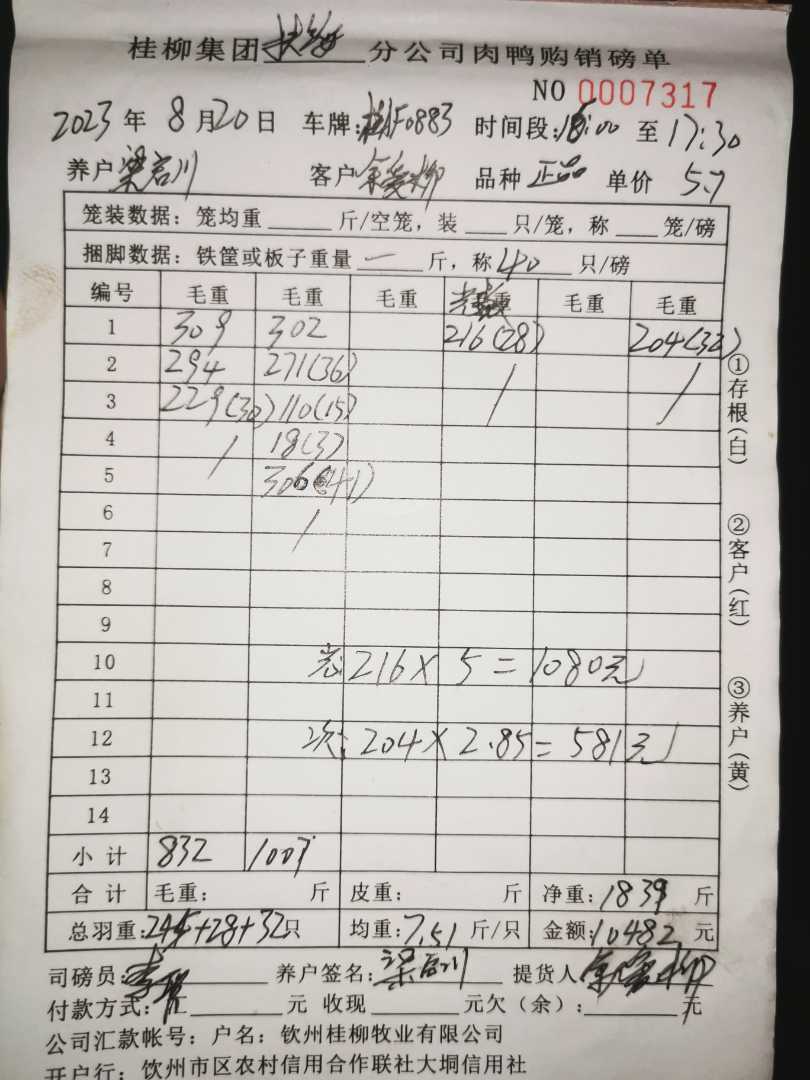 桂柳集团扶绥分公司肉鸭购销磅单
NO 0007317
2023年8月20日 车牌:桂AF0883 时间段:16:00至17:30
养户 梁启川 客户 余爱柳 品种 正品 单价 5.7
笼装数据：笼均重____斤/空笼，装____只/笼，称____笼/磅
捆脚数据：铁筐或板子重量 一 斤，称40只/磅
编号 毛重 毛重 毛重 重 毛重 毛重
1 309 302 216(28) 204(32)
2 294 271(36) / /
3 229(30) 110(15)
4 / 18(3)
5 306(41)
6 /
7
8
9
10 216×5=1080元
11
12 次:204×2.85=581元
13
14
小计 832 1007
合计 毛重： 斤 皮重： 斤 净重：1839 斤
总羽重:245+28+32只 均重:7.51斤/只 金额:10482元
司磅员: 养户签名:梁启川 提货人 余爱柳
付款方式:汇____元 收现____元欠（余）:____元
公司汇款帐号：户名：钦州桂柳牧业有限公司
开户行：钦州市区农村信用合作联社大垌信用社
①存根(白)
②客户(红)
③养户(黄)